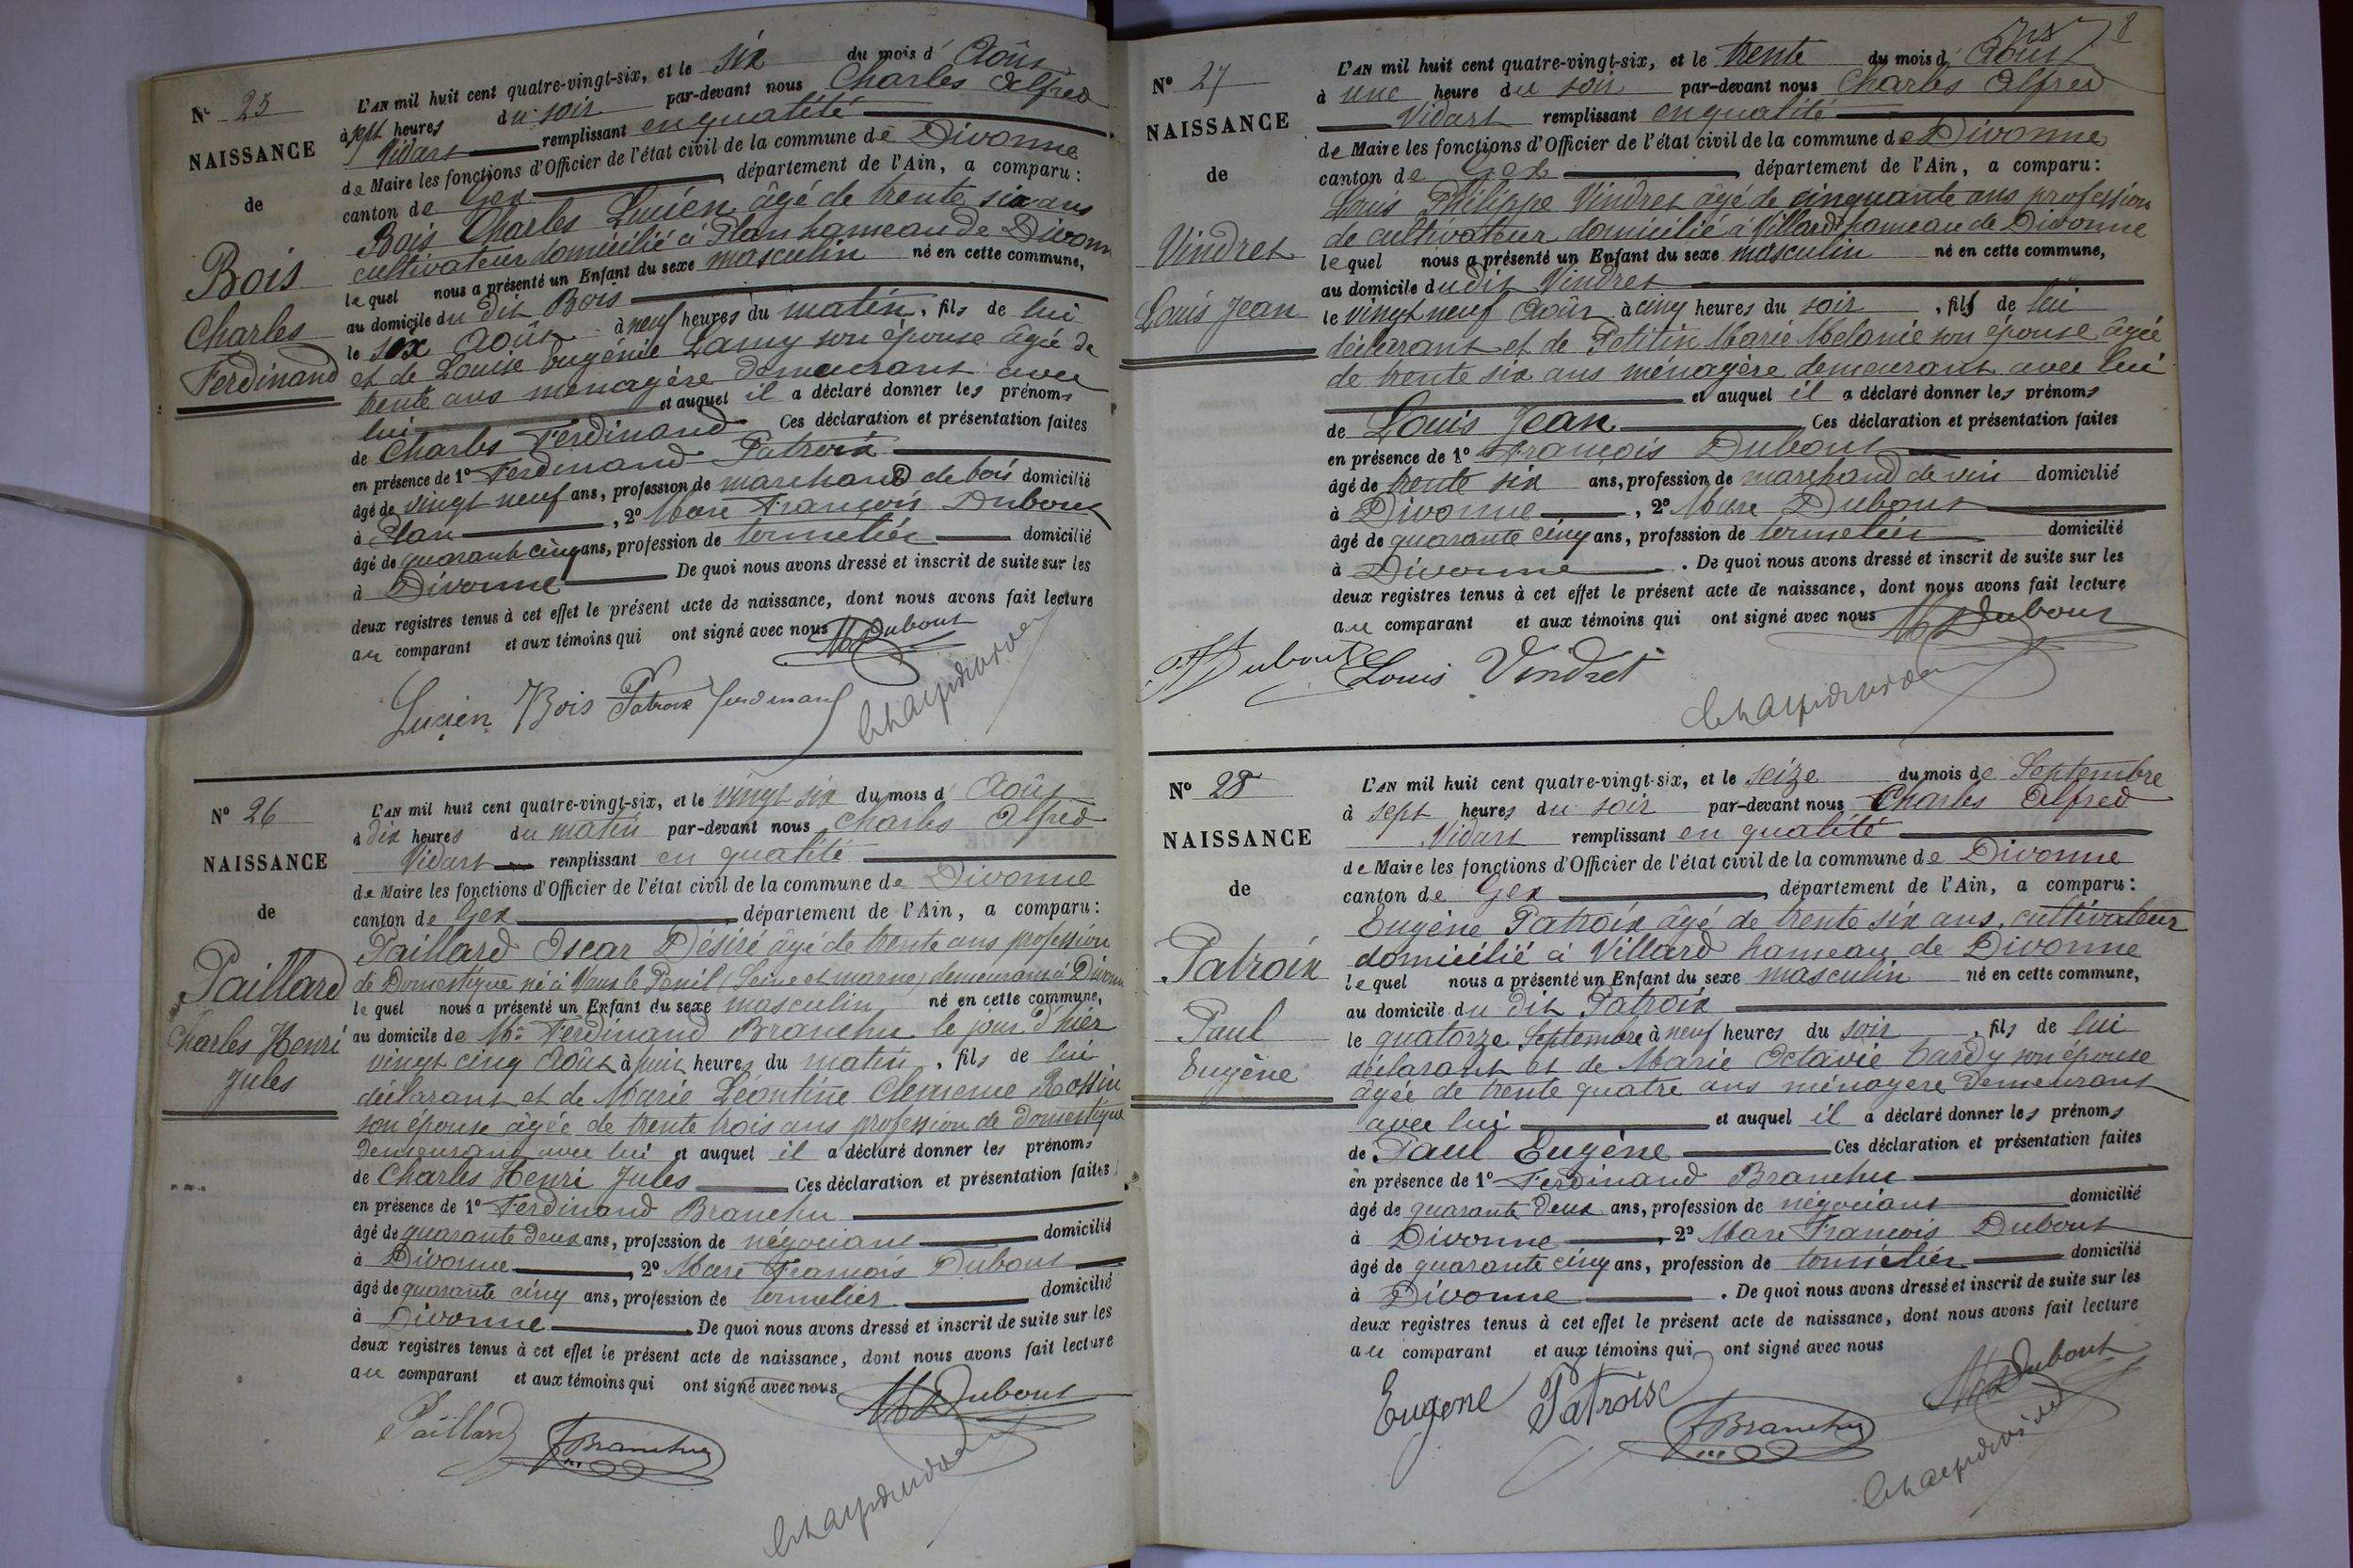 N° 25
NAISSANCE
de
Bois
Charles
Ferdinand
L'AN mil huit cent quatre-vingt-six, et le six du mois d' Août
à sept heures du soir par-devant nous Charles Alfred
Vidart remplissant en qualité
de Maire les fonctions d'Officier de l'état civil de la commune de Divonne
canton de Gex, département de l'Ain, a comparu:
Bois Charles Lucien âgé de trente six ans
cultivateur domicilié à Plan hameau de Divonne
lequel nous a présenté un Enfant du sexe masculin né en cette commune,
au domicile du dit Bois
le six Août à neuf heures du matin, fils de lui
et de Louise Eugénie Lamy son épouse âgée de
trente ans ménagère demeurant avec
lui et auquel il a déclaré donner les prénoms
de Charles Ferdinand Ces déclaration et présentation faites
en présence de 1° Ferdinand Patroix
âgé de vingt neuf ans, profession de marchand de bois domicilié
à Plan, 2° Marc François Dubout
âgé de quarante cinq ans, profession de domicilié
à Divonne De quoi nous avons dressé et inscrit de suite sur les
deux registres tenus à cet effet le présent acte de naissance, dont nous avons fait lecture
au comparant et aux témoins qui ont signé avec nous
M Dubout
Lucien Bois Patroix ferdinand
N° 26
NAISSANCE
de
Paillard
Charles Henri
Jules
L'AN mil huit cent quatre-vingt-six, et le vingt six du mois d' Août
à dix heures du matin par-devant nous Charles Alfred
Vidart remplissant en qualité
de Maire les fonctions d'Officier de l'état civil de la commune de Divonne
canton de Gex, département de l'Ain, a comparu:
Paillard Oscar Désiré âgé de trente ans profession
de Domestique né à Vaux le Penil (Seine et marne) demeurant à Divonne
lequel nous a présenté un Enfant du sexe masculin né en cette commune,
au domicile de Mr Ferdinand Branchu le jour d'hier
vingt cinq Août à huit heures du matin, fils de lui
déclarant et de Marie Léontine Clemence Rossin
son épouse âgée de trente trois ans profession de domestique
demeurant avec lui et auquel il a déclaré donner les prénoms
de Charles Henri Jules Ces déclaration et présentation faites
en présence de 1° Ferdinand Branchu
âgé de quarante deux ans, profession de négociant domicilié
à Divonne, 2° Marc François Dubout
âgé de quarante cinq ans, profession de domicilié
à Divonne. De quoi nous avons dressé et inscrit de suite sur les
deux registres tenus à cet effet le présent acte de naissance, dont nous avons fait lecture
au comparant et aux témoins qui ont signé avec nous
M Dubout
Paillard FBranchu
8
N° 27
NAISSANCE
de
Vindret
Louis Jean
L'AN mil huit cent quatre-vingt-six, et le trente du mois d' Août
à une heure du soir par-devant nous Charles Alfred
Vidart remplissant en qualité
de Maire les fonctions d'Officier de l'état civil de la commune de Divonne
canton de Gex, département de l'Ain, a comparu:
Louis Philippe Vindret âgé de cinquante ans profession
de cultivateur domicilié à Villard hameau de Divonne
lequel nous a présenté un Enfant du sexe masculin né en cette commune,
au domicile du dit Vindret
le vingt neuf Août à cinq heures du soir, fils de lui
déclarant et de Petitin Marie Mélanie son épouse âgée
de trente six ans ménagère demeurant avec lui
et auquel il a déclaré donner les prénoms
de Louis Jean Ces déclaration et présentation faites
en présence de 1° François Dubout
âgé de trente six ans, profession de marchand de vin domicilié
à Divonne, 2° Marc Dubout
âgé de quarante cinq ans, profession de domicilié
à Divonne. De quoi nous avons dressé et inscrit de suite sur les
deux registres tenus à cet effet le présent acte de naissance, dont nous avons fait lecture
au comparant et aux témoins qui ont signé avec nous
M Dubout
F Dubout Louis Vindret
N° 28
NAISSANCE
de
Patroix
Paul
Eugène
L'AN mil huit cent quatre-vingt-six, et le seize du mois de Septembre
à sept heures du soir par-devant nous Charles Alfred
Vidart remplissant en qualité
de Maire les fonctions d'Officier de l'état civil de la commune de Divonne
canton de Gex, département de l'Ain, a comparu:
Eugène Patroix âgé de trente six ans, cultivateur
domicilié à Villard hameau de Divonne
lequel nous a présenté un Enfant du sexe masculin né en cette commune,
au domicile du dit Patroix
le quatorze Septembre à neuf heures du soir, fils de lui
déclarant et de Marie Octavie Hardy son épouse
âgée de trente quatre ans ménagère demeurant
avec lui et auquel il a déclaré donner les prénoms
de Paul Eugène Ces déclaration et présentation faites
en présence de 1° Ferdinand Branchu
âgé de quarante deux ans, profession de négociant domicilié
à Divonne, 2° Marc François Dubout
âgé de quarante cinq ans, profession de domicilié
à Divonne. De quoi nous avons dressé et inscrit de suite sur les
deux registres tenus à cet effet le présent acte de naissance, dont nous avons fait lecture
au comparant et aux témoins qui ont signé avec nous
M Dubout
Eugene Patroix FBranchu